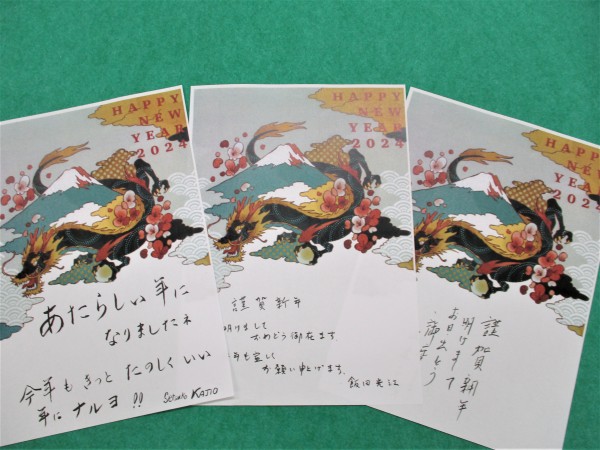 HAPPY
NEW
YEAR
2024
あたらしい年に
なりましたネ
今年もきっと たのしくいい
年にナルヨ!!
KAJIO
HAPPY
NEW
YEAR
2024
謹賀新年
明けまして
おめでとう御在ます。
年も宜しく
お願い申し上げます。
飯田
HAPPY
NEW
YEAR
2024
謹賀新年
明けまして
お目出とう